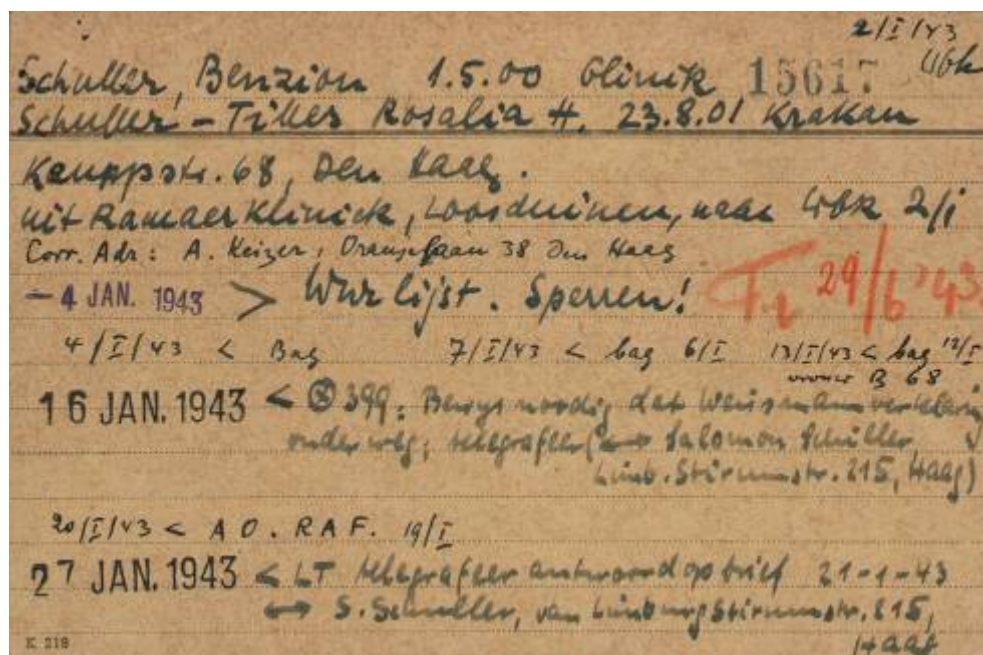 2/I/43
Schuller, Benzion 1.5.00 Glinik 15617 Wbk
Schuller-Tilles Rosalia H. 23.8.01 Krakau
str. 68, Den Haag.
uit Ramaer Klinick, Loosduinen, naar Wbk 2/i
Corr. Adr: A. Keizer, Oranjelaan 38 Den Haag
- 4 JAN. 1943 > Wwr lijst. Sperren! 29/6 '43
4/I/43 < Bag 7/I/43 < bag 6/I 13/I/43 < bag 12/I
B 68
16 JAN. 1943 < 399: Bewys noodig dat Weismann verklaring
onderweg; telegrafeer (↔ Salomon Schuller
Limb. Stirumstr. 215, Haag)
20/I/43 < A O. RAF. 19/I
27 JAN. 1943 < LT telegrafeer antwoord op brief 21-1-43
↔ S. Schuller, van Limburg Stirumstr. 215,
Haag
K. 218